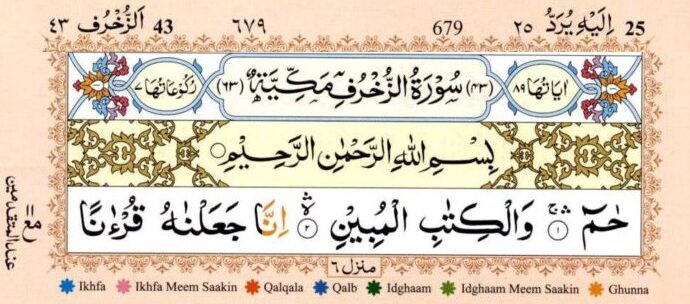 اَلزُّخْرُف ٤٣ 43 ٦٧٩ 679 اِلَيْهِ يُرَدُّ ٢٥ 25
اٰيَاتُهَا ٨٩ (٤٣) سُوْرَةُ الزُّخْرُفِ مَكِّيَّةٌ (٦٣) رُكُوْعَاتُهَا ٧
بِسْمِ اللّٰهِ الرَّحْمٰنِ الرَّحِيْمِ
حٰمٓ ۚۛ ١ وَالْكِتٰبِ الْمُبِيْنِ ۙۛ ٢ اِنَّا جَعَلْنٰهُ قُرْءٰنًا
مع
عند المتقدمين
منزل ٦
Ikhfa Ikhfa Meem Saakin Qalqala Qalb Idghaam Idghaam Meem Saakin Ghunna